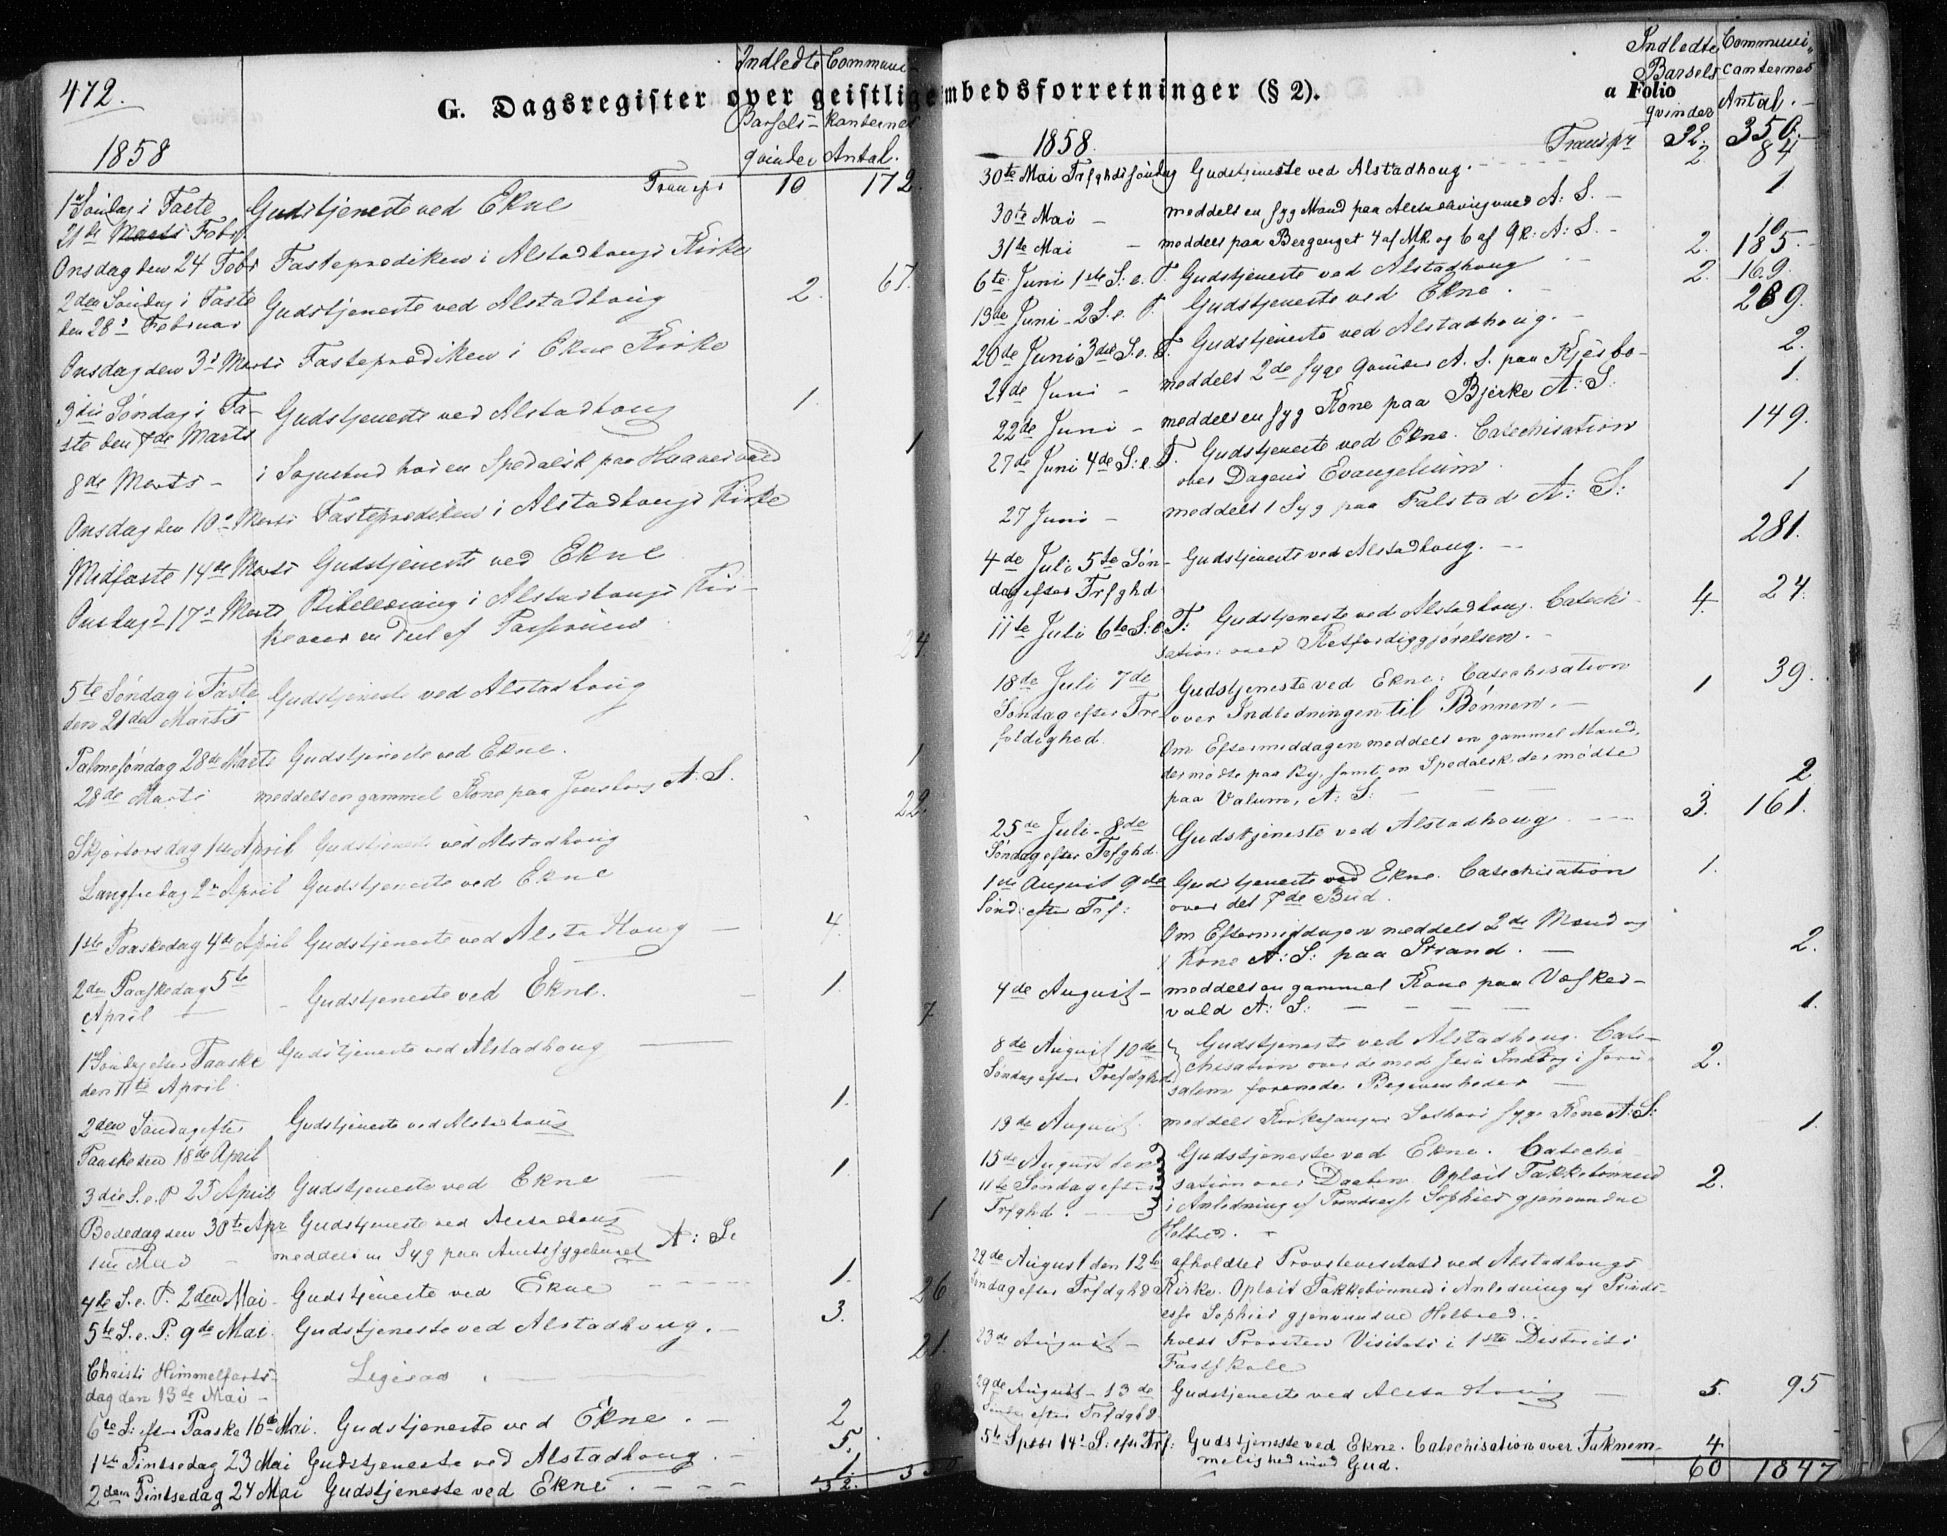 472.
G. Dagsregister over geistlige
Indledte Communi-
Barsels- kanternes
qvinder Antal.
1858
Transpr 10 172.
1ste Søndag i Faste Gudstjeneste ved Ekne
21de Marts Febr.
Onsdag den 24 Febr Fasteprædiken i Alstadhougs Kirke
2den Søndag i Faste Gudstjeneste ved Alstadhoug 2. 67.
den 28de Februar
Onsdag den 3de Marts Fasteprædiken i Ekne Kirke
3die Søndag i Fa- Gudstjeneste ved Alstadhoug 1.
ste den 7de Marts
8de Marts - i Sognebud hos en Spedalsk paa 1
Onsdag den 10de Marts Fasteprædiken i Alstadhougs Kirke
Midfaste 14de Marts Gudstjeneste ved Ekne
Onsdag 17de Marts Bibellæsning i Alstadhougs Kir-
ke over en Deel af Passionen 24
5te Søndag i Faste Gudstjeneste ved Alstadhoug
den 21de Marts
Palmesøndag 28de Marts Gudstjeneste ved Ekne.
28de Marts meddelt en gammel Kone paa A. S. 1
Skjærtorsdag 1ste April Gudstjeneste ved Alstadhoug 22.
Langfredag 2den April Gudstjeneste ved Ekne
1ste Paaskedag 4de April Gudstjeneste ved Alstadhoug - 4.
2den Paaskedag 5te - Gudstjeneste ved Ekne. - 1.
April 7
1ste Søndag efter Paaske Gudstjeneste ved Alstadhoug
den 11te April.
2den Søndag efter Gudstjeneste ved Alstadhoug 1.
Paaske den 18de April
3die S. e. P. 25 April Gudstjeneste ved Ekne 1.
Bededag den 30te Apr Gudstjeneste ved Alstadhoug
1ste Mai - meddelt en Syg paa Amtssygehuset A: S: 1
4de S. e. P. 2den Mai - Gudstjeneste ved Ekne 1. 26
5te S. e. P. 9de Mai. Gudstjeneste ved Alstadhoug. - 3. 21.
Christi Himmelfarts- Ligesaa
dag den 13de Mai -
6te S: efter Paaske 16de Mai. Gudstjeneste ved Ekne. - 2
1ste Pintsedag 23 Mai Gudstjeneste ved Alstadhoug. - 5.
2den Pintsedag 24 Mai Gudstjeneste ved Ekne. - - - 1.
32.
mbedsforretninger (§ 2).
a Folio
Indledte Communi-
Barsels canternes
qvinder Antal.
1858. Transpr 32. 350.
30te Mai Trfghds søndag Gudstjeneste ved Alstadhoug. 2 84
30te Mai - meddelt en syg Mand paa A: S. - 1
31te Mai - meddelt paa Berganget 4 af Mk og 6 af Qk: A: S. - 10
6te Juni 1ste S: e. T. Gudstjeneste ved Alstadhoug 2. 185.
13de Juni - 2 S. e. T. Gudstjeneste ved Ekne. 2. 169.
20de Juni 3die S. e. T. Gudstjeneste ved Alstadhoug. - 289.
21de Juni - meddelt 2de syge Qvinder A. S. paa 2.
22de Juni - meddelt en syg Kone paa Bjerke A: S: 1.
27de Juni 4de S: e. T. Gudstjeneste ved Ekne. Catechisation 149.
over Dagens Evangelium.
27 Juni - meddelt 1 Syg paa Falstad A: S: 1
4de Juli 5te Søn- Gudstjeneste ved Alstadhoug. - 281.
dag efter Trfghd
11te Juli 6te S: e T: Gudstjeneste ved Alstadhoug. Catechi- 4. 24.
sation: over Retfærdiggjørelsen. -
18de Juli 7de Gudstjeneste ved Ekne: Catechisation 1 39.
Søndag efter Tre- over Indledningen til Bønnen. -
foldighed Om Eftermiddagen meddelt en gammel Mand,
der mødte paa By, samt en Spedalsk der mødte
paa Valum, A: S: - - - 2
25de Juli - 8de Gudstjeneste ved Alstadhoug. - 3. 161.
Søndag efter Trfghd.
1ste August 9de Gudstjeneste ved Ekne. Catechisation 1.
Sønd: efter Trf: over det 7de Bud.
Om Eftermiddagen meddelt 2de Mænd og
1 Kone A: S: paa Strand. - 2.
4de August - meddelt en gammel Kone paa
vald A: S: - - - 1.
8de August 10de Gudstjeneste ved Alstadhoug. Cate-
Søndag efter Trefdghd chisation over de med Jesu Indtog i Jeru- 2.
salem forenede Begivenheder -
meddelt Kirkesanger syge Kone A: S: 1.
15de August den Gudstjeneste ved Ekne. Catechi-
11te Søndag efter sation over Daaben. Oplæst Takkebønnen 2.
Trfghd. i Anledning af Prindsesse Sophies gjenvundne
Helbred.
22de August den 12te afholdtes Provstevisitats ved Alstadhougs
Søndag efter Trfdghd Kirke. Oplæst Takkebønnen i Anledning af Prinds-
esse Sophies gjenvundne Helbred.
23de August - holdt Provsten Visitats i 1ste Districts
Fastskole
29de August - 13de Gudstjeneste ved Alstadhoug - 5. 95
Søndag efter Trfdghd.
5te Sptbr 14de S. efter Trf: Gudstjeneste ved Ekne. Catechisation over Taknem- 4
melighed imod Gud. 60 1847